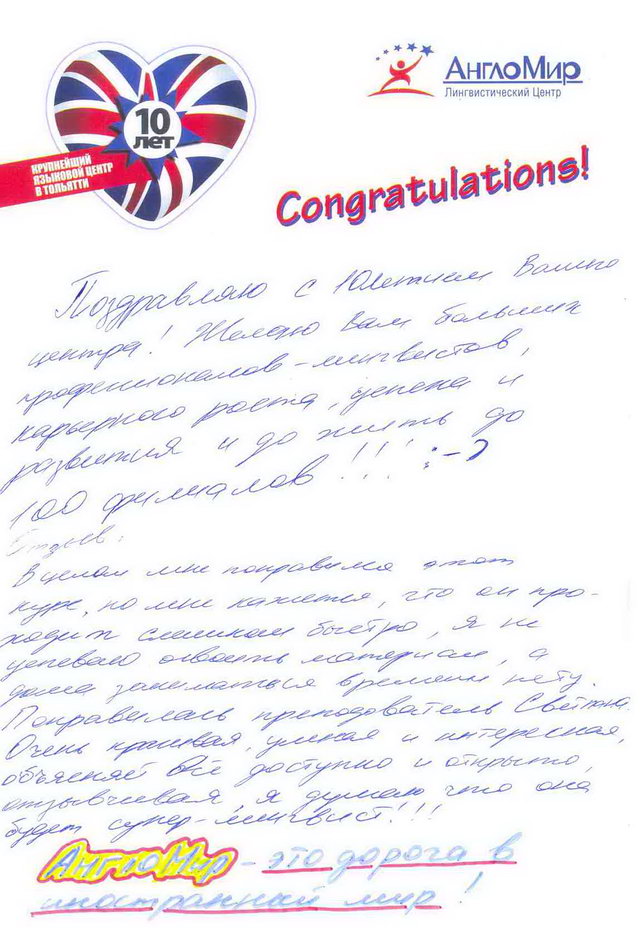 10
лет
КРУПНЕЙШИЙ
ЯЗЫКОВОЙ ЦЕНТР
В ТОЛЬЯТТИ
АнглоМир
Лингвистический Центр
Congratulations!
Поздравляю с 10летием Вашего
центра! Желаю Вам больших
профессионалов-лингвистов,
карьерного роста, успеха и
развития и до жить до
100 филиалов!!! :-)
Отзыв:
В целом мне понравился этот
курс, но мне кажется, что он про-
ходит слишком быстро, я не
успеваю освоить материал, а
дома заниматься времени нету.
Понравилась преподователь Светлана.
Очень красивая, умная и интересная,
объясняет всё доступно и открыто,
отзывчивая, я думаю что она
будет супер-лингвист!!!
АнглоМир - это дорога в
иностранный мир!